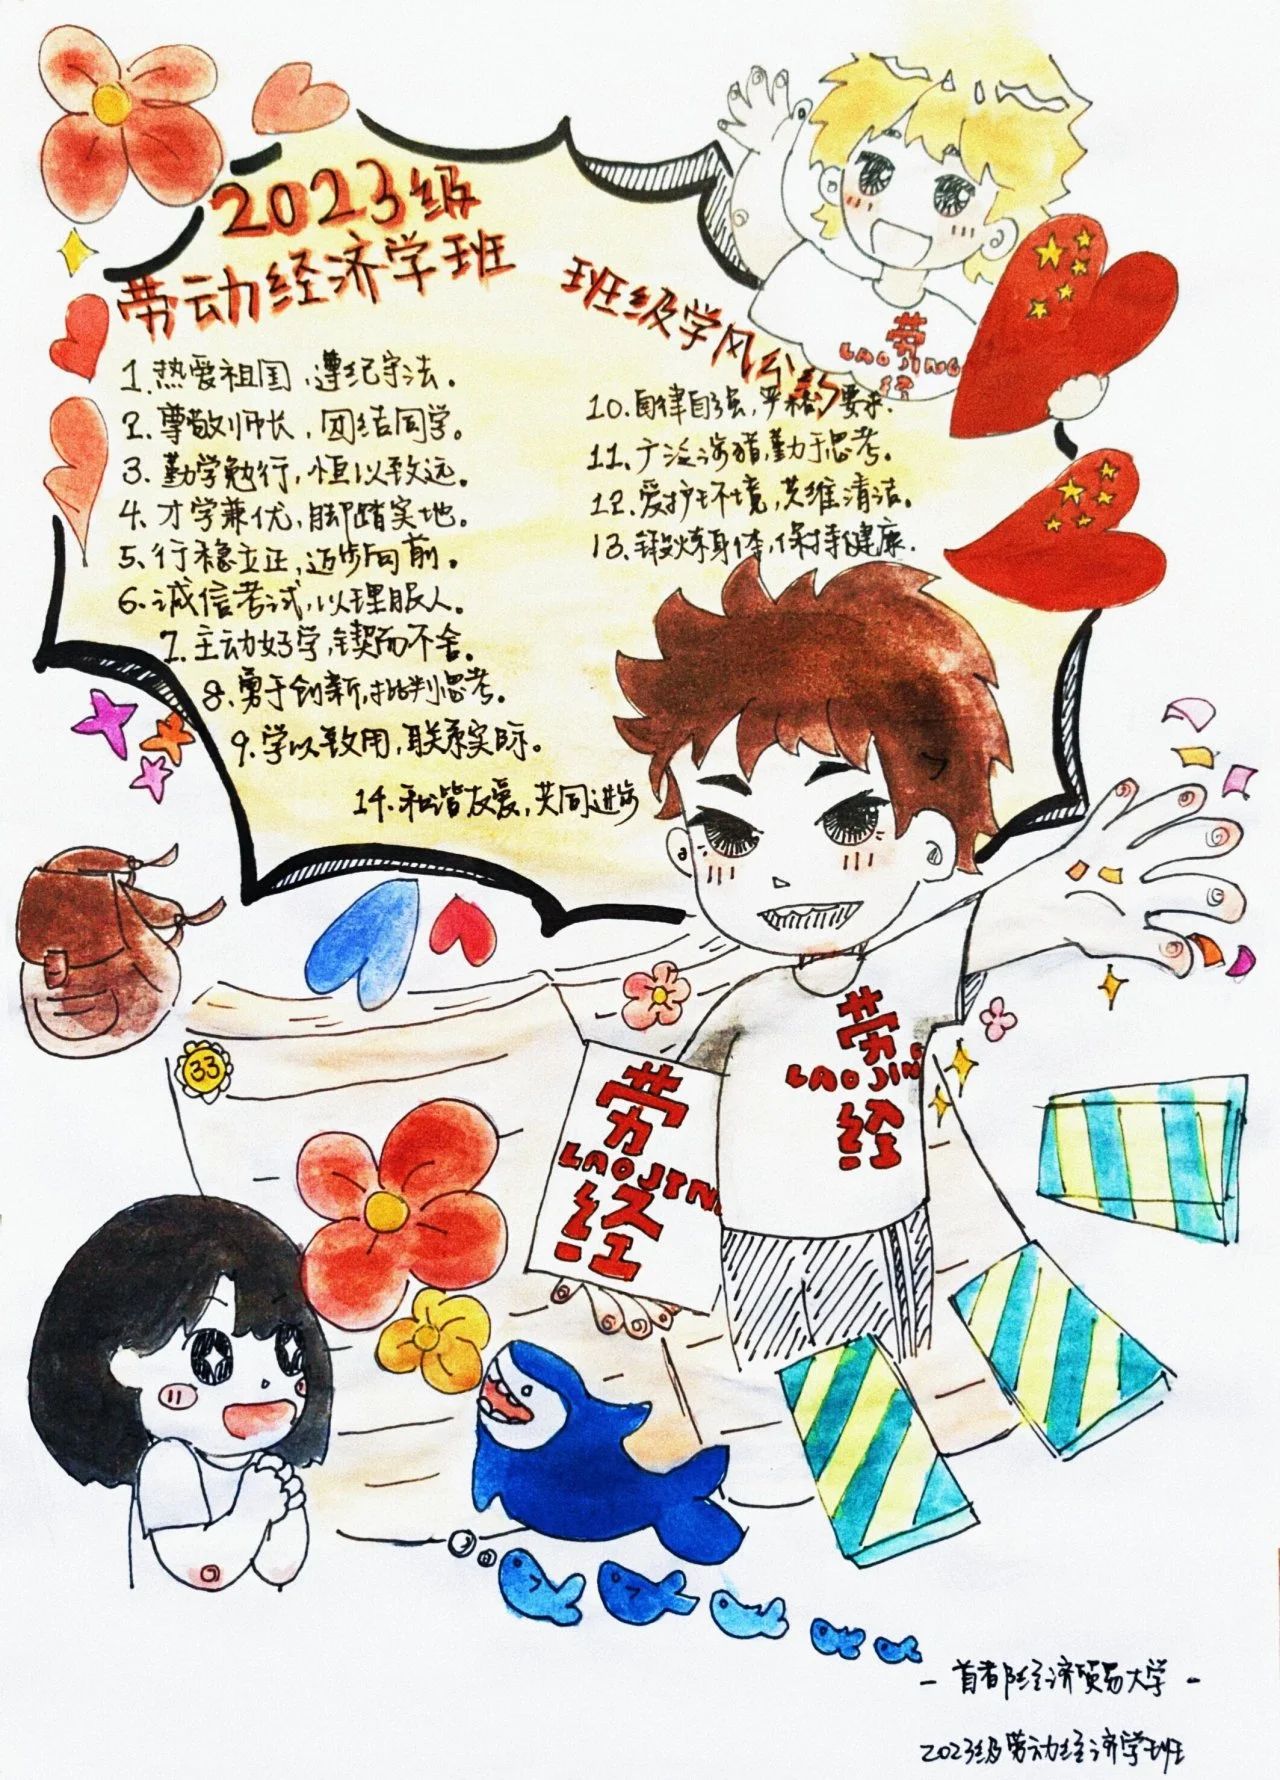 2023级
劳动经济学班
班级学风公约
1.热爱祖国,遵纪守法。
2.尊敬师长,团结同学。
3.勤学勉行,恒以致远。
4.才学兼优,脚踏实地。
5.行稳立正,迈步向前。
6.诚信考试,以理服人。
7.主动好学,锲而不舍。
8.勇于创新,批判思考。
9.学以致用,联系实际。
10.自律自强,严格要求.
11.广泛涉猎,勤于思考。
12.爱护环境,共维清洁。
13.锻炼身体,保持健康.
14.和谐友爱,共同进步
劳
LAOJING
经
33
劳
LAOJING
经
劳
LAOJIN
经
-首都经济贸易大学-
2023级劳动经济学班